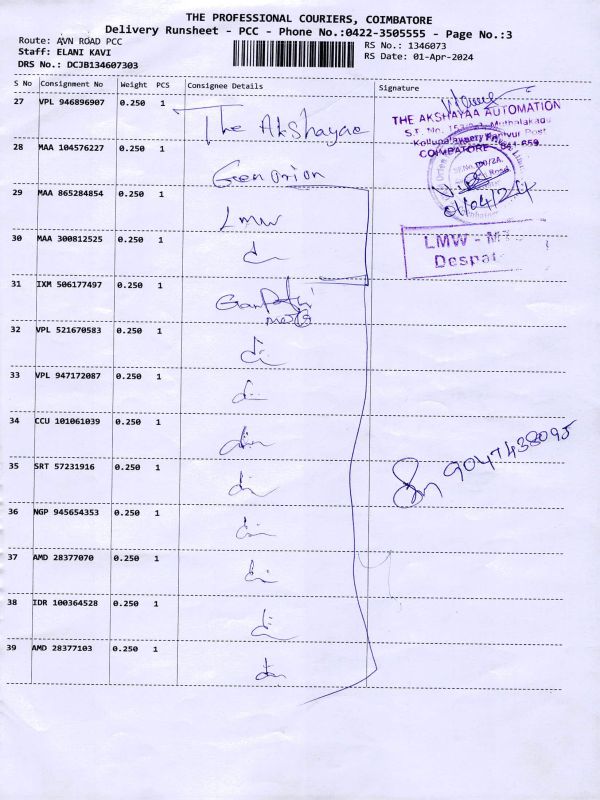 THE PROFESSIONAL COURIERS, COIMBATORE
Delivery Runsheet - PCC - Phone No.:0422-3505555 - Page No.:3
Route: AVN ROAD PCC
Staff: ELANI KAVI
DRS No.: DCJB134607303
RS No.: 1346073
RS Date: 01-Apr-2024
S No Consignment No Weight PCS Consignee Details Signature
27 VPL 946896907 0.250 1 The Akshayaa
THE AKSHAYAA AUTOMATION
COIMBATORE - 641 659
28 MAA 104576227 0.250 1 Gen Orion
01/04/24
29 MAA 865284854 0.250 1 LMW
30 MAA 300812525 0.250 1
LMW -
Despat
31 IXM 506177497 0.250 1
32 VPL 521670583 0.250 1
33 VPL 947172087 0.250 1
34 CCU 101061039 0.250 1
9047438095
35 SRT 57231916 0.250 1
36 NGP 945654353 0.250 1
37 AMD 28377070 0.250 1
38 IDR 100364528 0.250 1
39 AMD 28377103 0.250 1